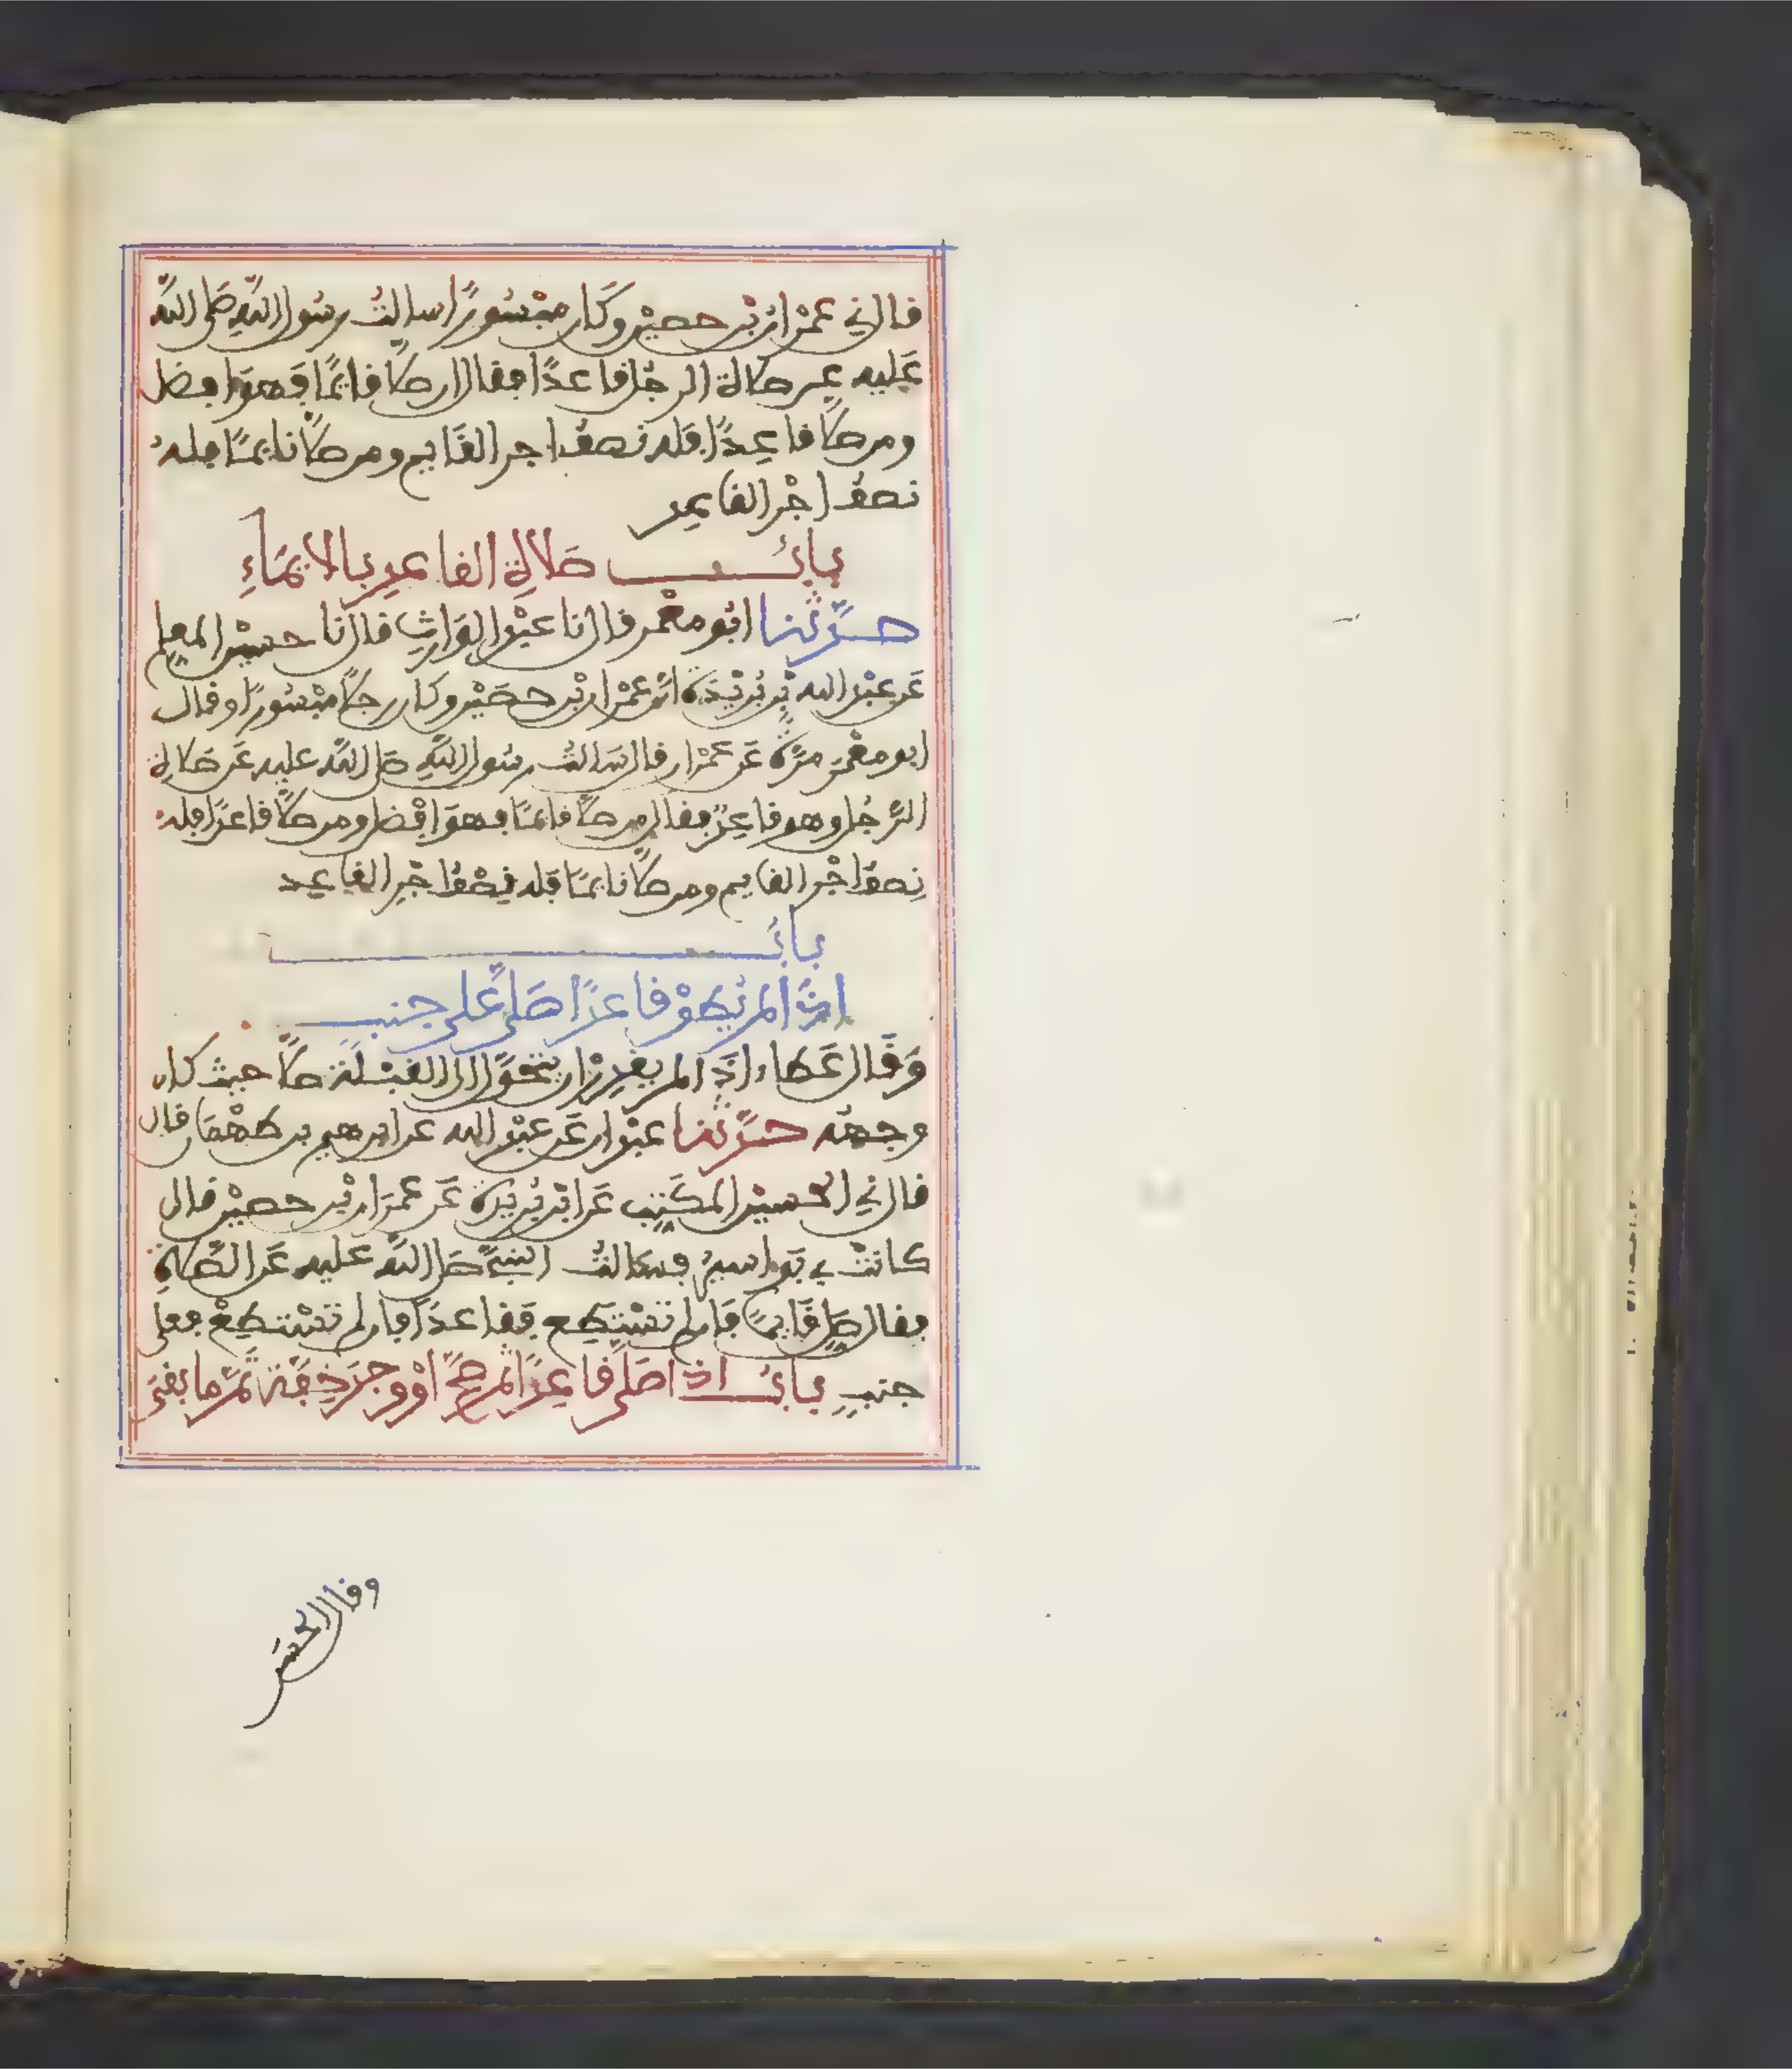 قال ني عمران بن حصين وكان مبسورًا سالت رسول الله صلى الله
عليه عن صلاة الرجل قاعدًا فقال ان صلى قائمًا فهو افضل
ومن صلى قاعدًا فله نصف اجر القايم ومن صلى نايمًا فله
نصف اجر القاعد
باب صلاة القاعد بالايماء
حدثنا ابو معمر قال نا عبد الوارث قال نا حسين المعلم
عن عبد الله بن بريدة ان عمران بن حصين وكان رجلا مبسورًا وقال
ابو معمر مرة عن عمران قال سالت رسول الله صلى الله عليه عن صلاة
الرجل وهو قاعد فقال من صلى قائمًا فهو افضل ومن صلى قاعدًا فله
نصف اجر القايم ومن صلى نايمًا فله نصف اجر القاعد
باب
اذا لم يطق قاعدًا صلى على جنب
وقال عطاء اذا لم يقدر ان يتحول الى القبلة صلى حيث كان
وجهه حدثنا عبدان عن عبد الله عن ابرهيم بن طهمان قال
قال ني الحسين المكتب عن ابن بريدة عن عمران بن حصين قال
كانت بي بواسير فسالت النبي صلى الله عليه عن الصلاة
فقال صل قايمًا فان لم تستطع فقاعدًا فان لم تستطع فعلى
جنب باب اذا صلى قاعدًا ثم صح او وجد خفة تمم ما بقي
وقال الحسن